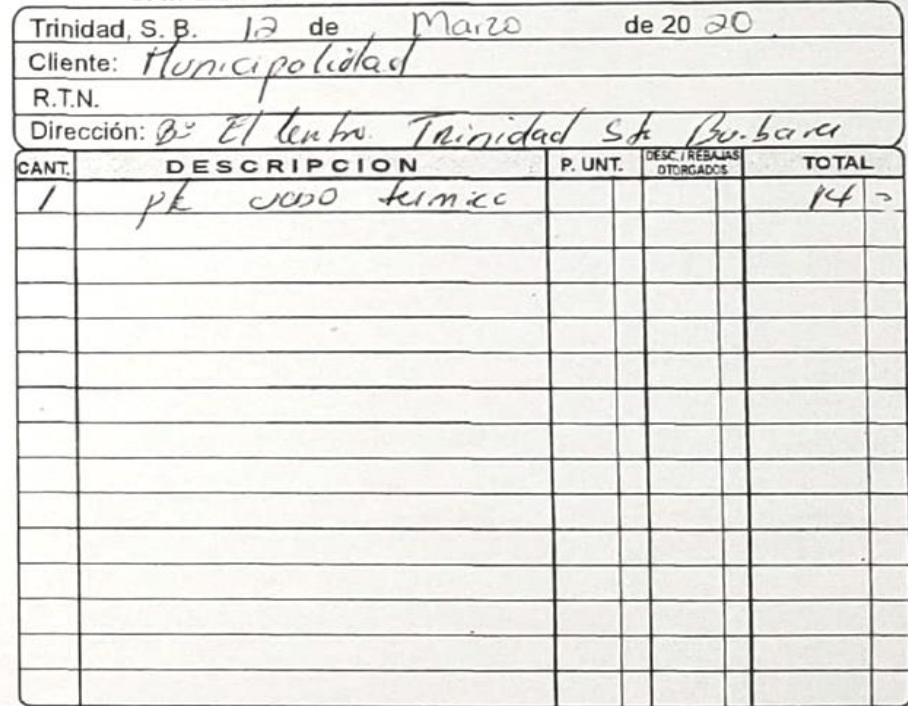 Trinidad, S. B. 12 de Marzo de 20 20
Cliente: Municipalidad
R.T.N.
Dirección: Bº El Centro. Trinidad Sta Barbara
CANT. DESCRIPCION P. UNT. DESC. / REBAJAS OTORGADOS TOTAL
1 pk vaso termico 14 -